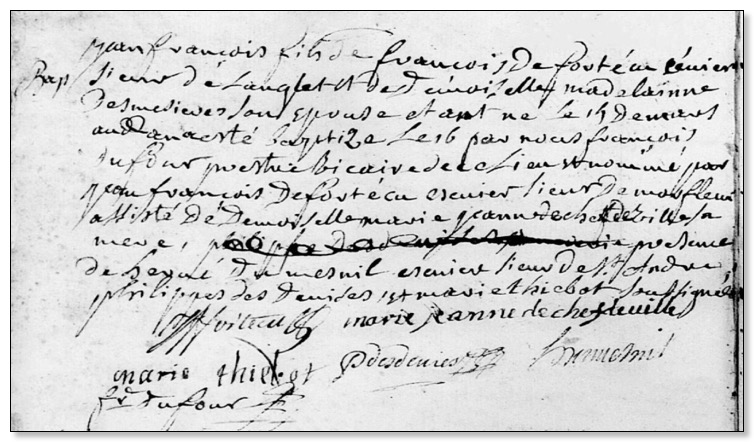 Bap
jean francois fils de francois De fortécu escuier
sieur dé Langlet et de Demoiselle madelainne
Desmesieres son Epouse etant ne le 15 de mars
audit an a esté baptizé Le 16 par nous francois
dufour prestre Vicaire de ce Lieu et nommé par
jean francois De fortécu escuier sieur De monfleur
assisté dé Demoiselle marie jeanne de chefdeville sa
mere, presence
de hervé Dumesnil escuier sieur de St. André
philippes des Devises, et marie thiebot soussignés
marie jeanne de chefdeville
marie thiebot P desdevises h dumesnil
fr. dufour